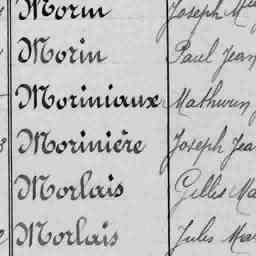 Morin Joseph
Morin Paul Jean
Moriniaux Mathurin
Morinière Joseph Jea
Morlais Gilles Ma
Morlais Jules Mar